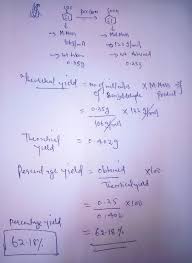 CHO
→ M.Mass
106 g/mol
→ wt taken
0.35g
→ Mol.Mass
122 g/mol
→ wt obtained
0.25g
Theoretical yield = no. of moles of Benzaldehyde × M.Mass of Product
= 0.35g / 106 g/mol × 122 g/mol
Theoretical yield = 0.402g
Percentage yield = obtained / Theoretical yield × 100
= 0.25 / 0.402 × 100
= 62.18%
Percentage yield
62.18%